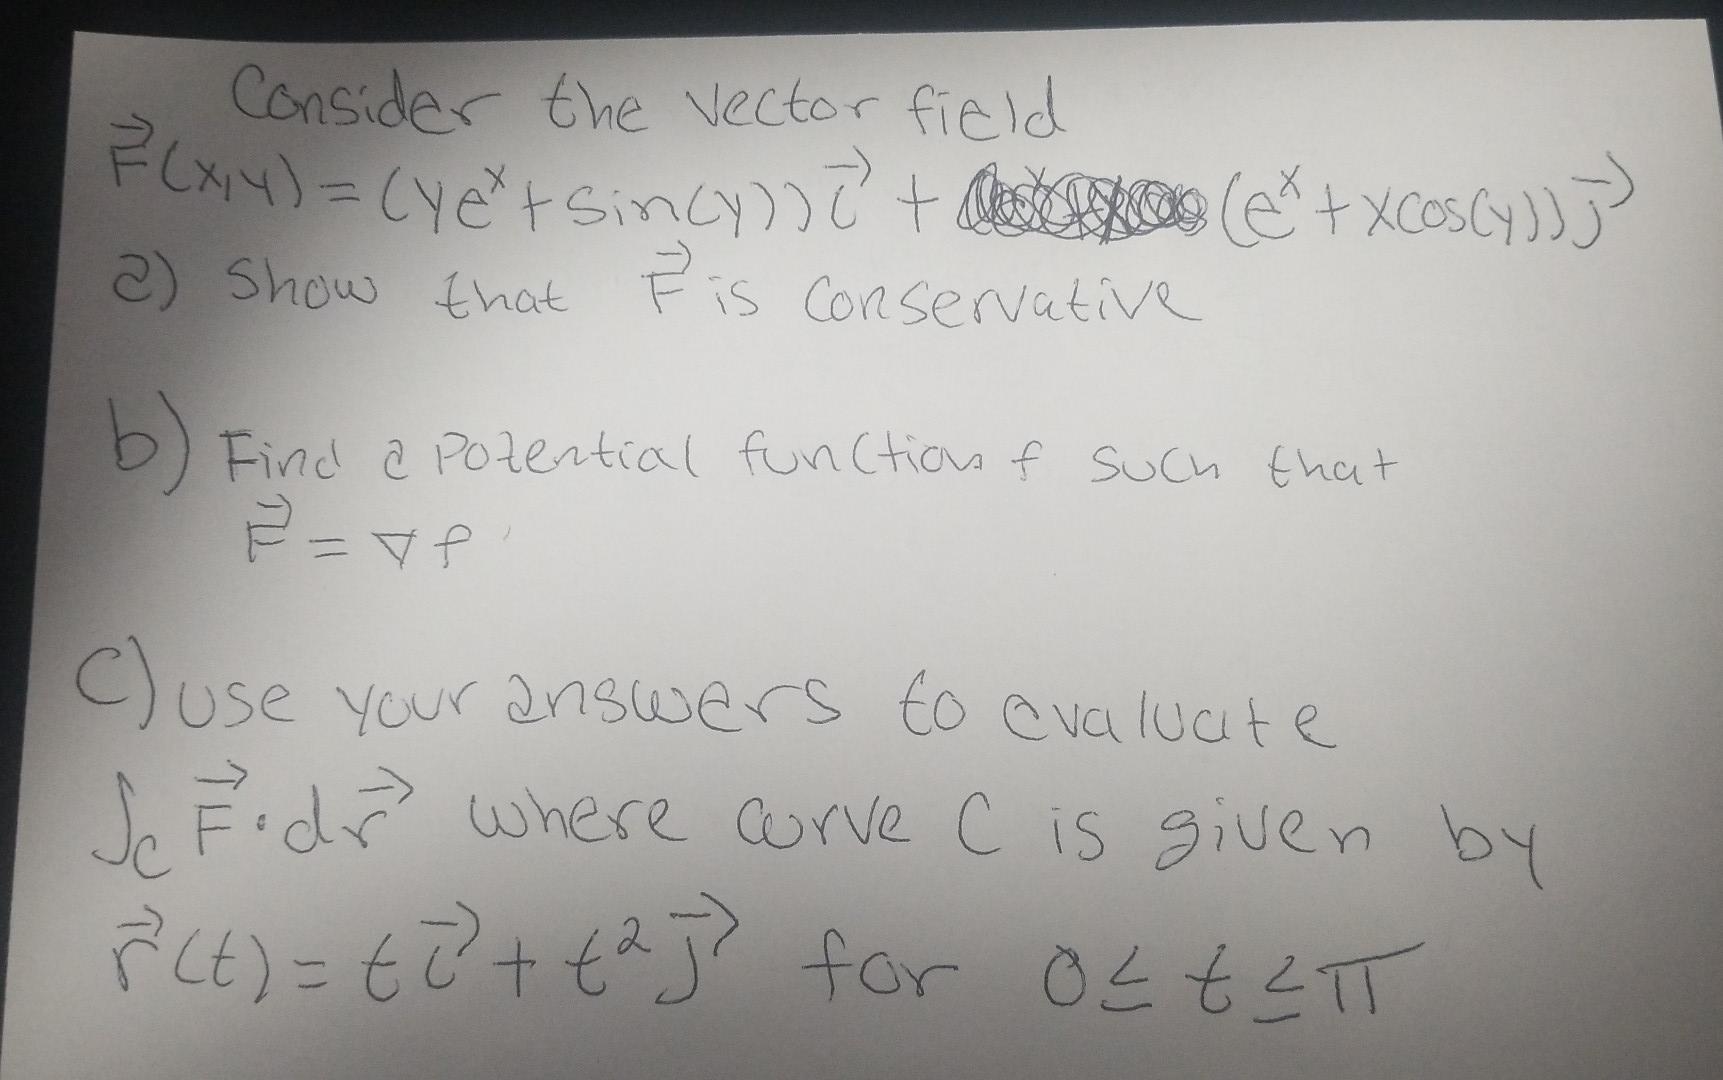 Consider the vector field
F⃗(x,y) = (ye^x + sin(y)) i⃗ + (e^x + xcos(y)) j⃗
a) Show that F⃗ is conservative
b) Find a Potential function f such that
F⃗ = ∇f
c) use your answers to evaluate
∫_C F⃗ · dr⃗ where curve C is given by
r⃗(t) = t i⃗ + t² j⃗ for 0 ≤ t ≤ π